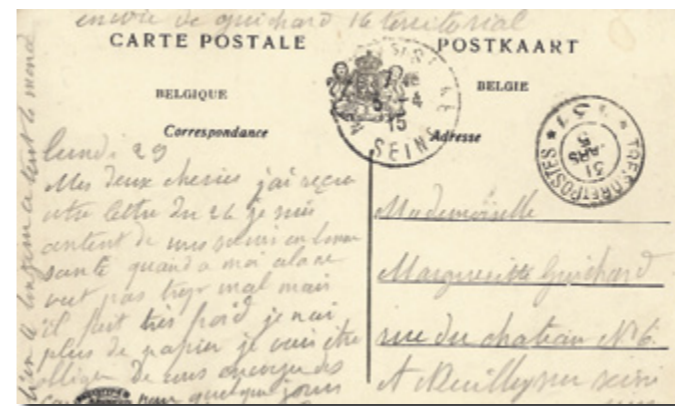 envoie de guichard 16 territorial
CARTE POSTALE
POSTKAART
BELGIQUE
BELGIE
Correspondance
Adresse
5 -4
15
SEINE
TRESOR ET POSTES
* 131 *
31
MARS
15
lundi 29
Mes deux cheries j'ai reçu
votre lettre du 26 je suis
content de vous savoir en bonne
sante quand a moi cela ne
vat pas trop mal mais
il fait très froid je n'ai
plus de papier je vais être
obliger de vous envoyer des
pour quelque jours
bien le bonjour a tout le monde
Mademoiselle
Marguerite Guichard
rue du chateau No 6
A Neuilly sur seine